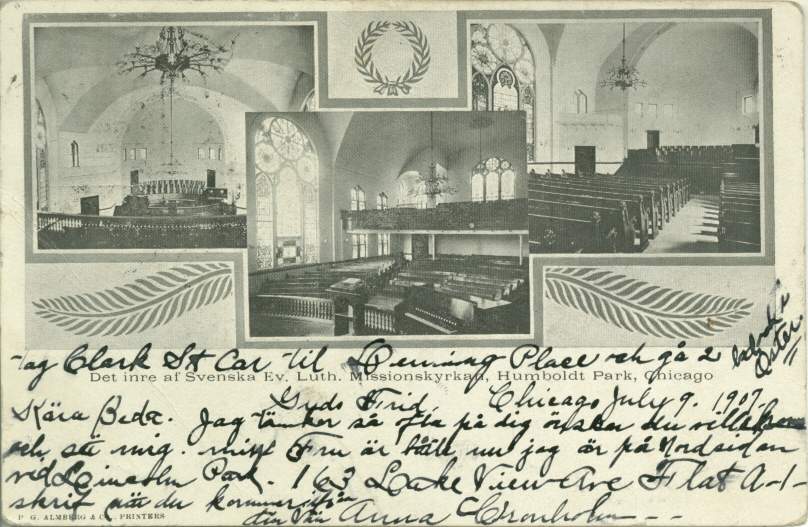 tag Clark St Car til Deming Place och gå 2
blocks
Öster
Det inre af Svenska Ev. Luth. Missionskyrkan, Humboldt Park, Chicago
Guds Frid. Chicago July 9. 1907.
Kära Beda. Jag tänker så ofta på dig önskar du ville komma
och se mig. min Fru är nu jag är på Nordsidan
ved Lincoln Park. 163 Lake View Ave Flat A-1-
skrif när du kommer
din Vän Anna Cronholm
P. G. ALMBERG & CO., PRINTERS